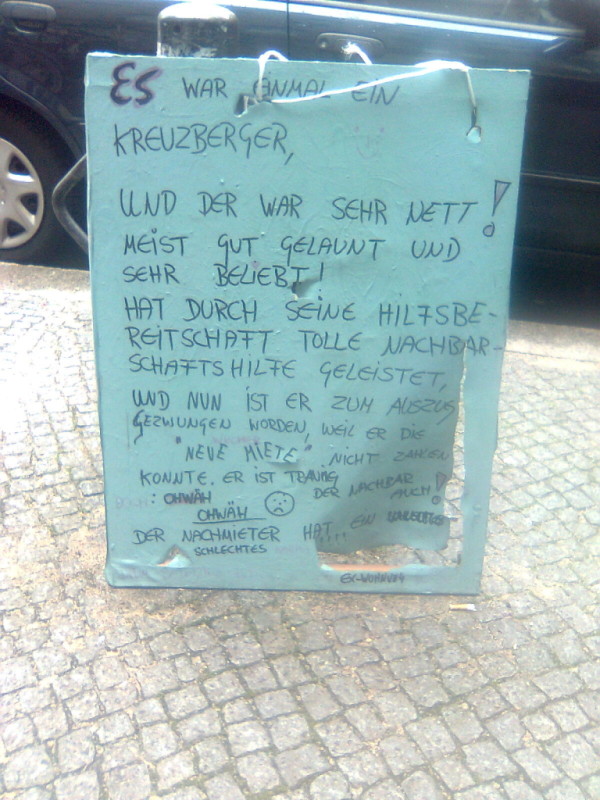 ES WAR EINMAL EIN
KREUZBERGER,
UND DER WAR SEHR NETT!
MEIST GUT GELAUNT UND
SEHR BELIEBT!
HAT DURCH SEINE HILFSBE-
REITSCHAFT TOLLE NACHBAR-
SCHAFTSHILFE GELEISTET,
UND NUN IST ER ZUM AUSZUG
GEZWUNGEN WORDEN, WEIL ER DIE
"NEUE MIETE" NICHT ZAHLEN
KONNTE. ER IST TRAURIG
DER NACHBAR AUCH!
: OHWÄH
OHWÄH
DER NACHMIETER HAT... EIN
SCHLECHTES